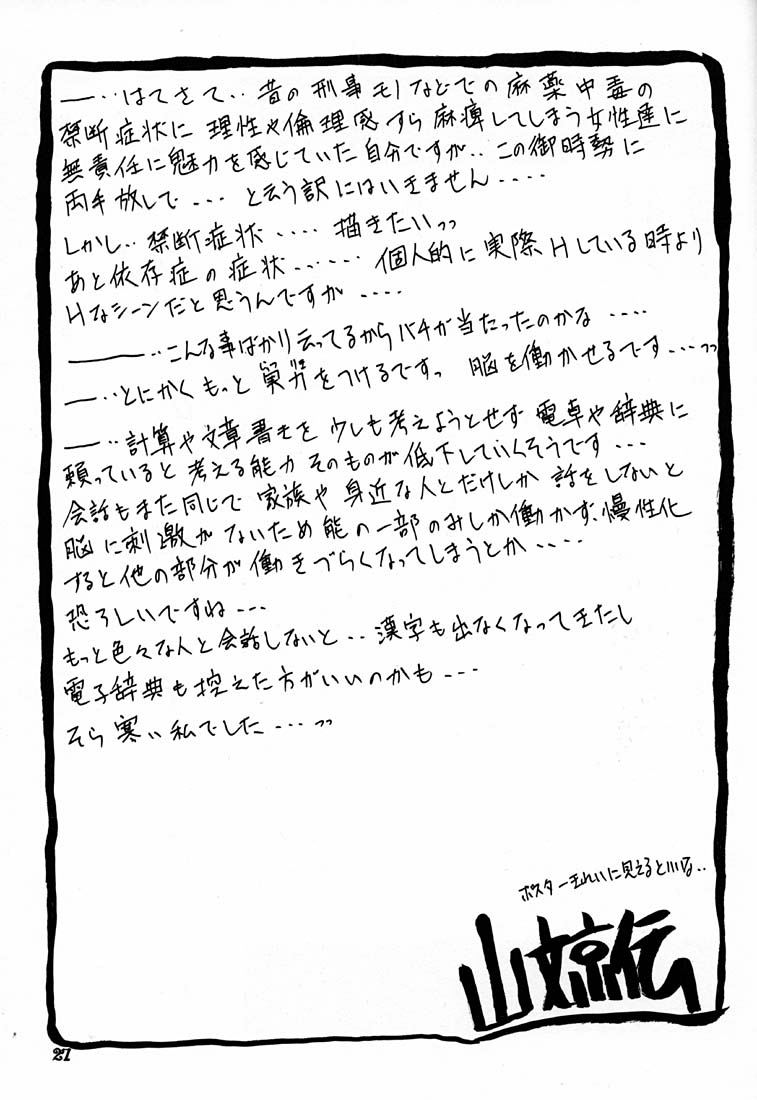 ――‥はてさて‥昔の刑事モノなどでの麻薬中毒の
禁断症状に理性や倫理感すら麻痺してしまう女性達に
無責任に魅力を感じていた自分ですが‥この御時勢に
両手放しで‥‥と云う訳にはいきません‥‥
しかし‥禁断症状‥‥描きたいっっ
あと依存症の症状‥‥‥個人的に実際Hしている時より
Hなシーンだと思うんですが‥‥
―――‥こんな事ばかり云ってるからバチが当たったのかな‥‥
――‥とにかくもっと をつけるですっ 脳を働かせるです‥‥っっ
――‥計算や文章書きを少しも考えようとせず電卓や辞典に
頼っていると考える能力そのものが低下していくそうです‥‥
会話もまた同じで家族や身近な人とだけしか話をしないと
脳に刺激がないため能の一部のみしか働かず、慢性化
すると他の部分が働きづらくなってしまうとか‥‥
恐ろしいですね‥‥
もっと色々な人と会話しないと‥漢字も出なくなってきたし
電子辞典も控えた方がいいのかも‥‥
そら寒い私でした‥‥っっ
ポスターきれいに見えるといいな‥
山文京伝
27